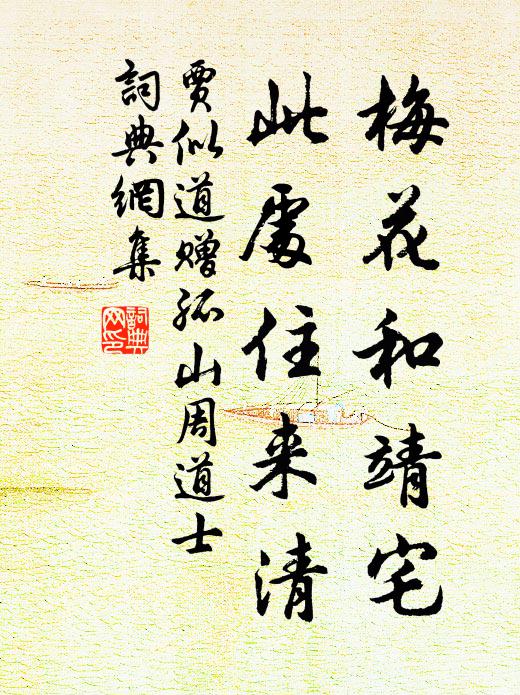 梅花和靖宅
此處住来清
賈似道贈孤山周道士
詞典網集
詞典
网印